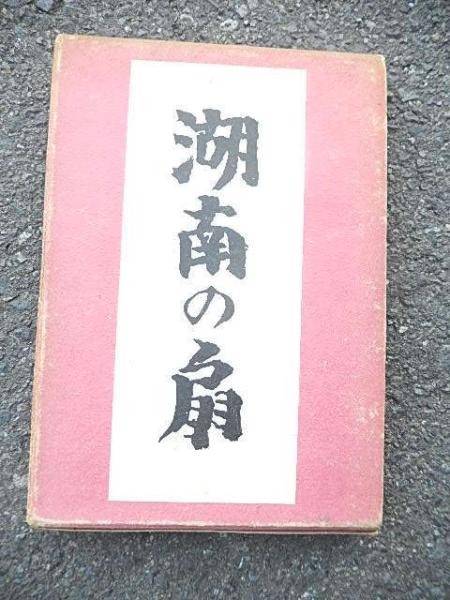 湖南の扇